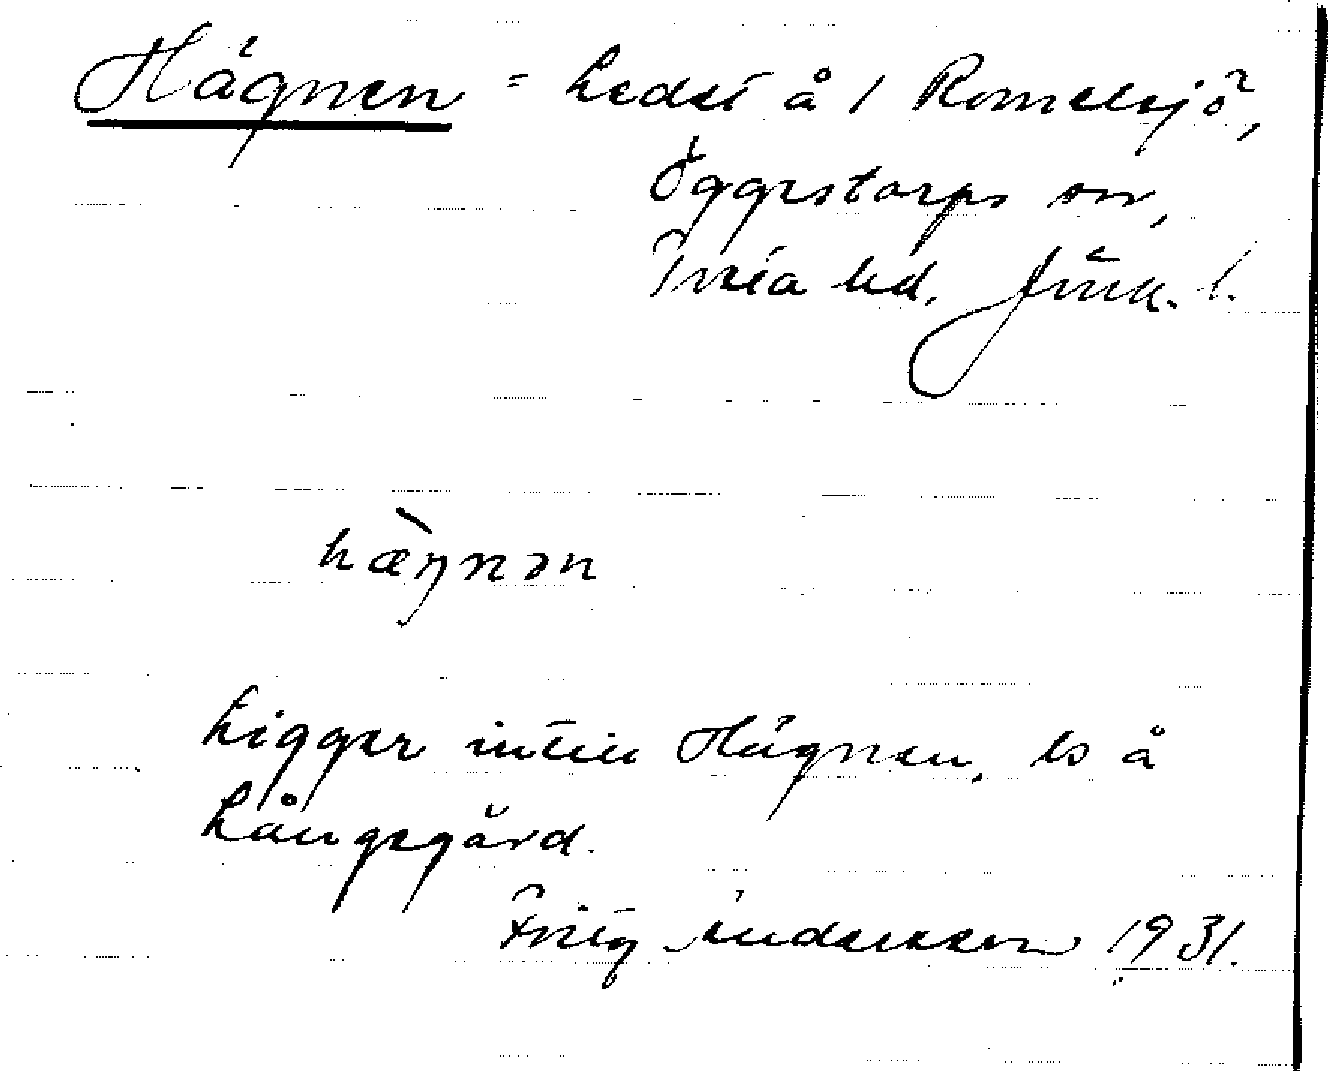 Hägnen = Ledet å 1 Romelsjö,
Öggestorps sn,
Tveta hd. Jönk. l.
hæ̀ŋnən
Ligger intill Hägnen, ls å
Långegärd.
Fritz Andersson 1931.